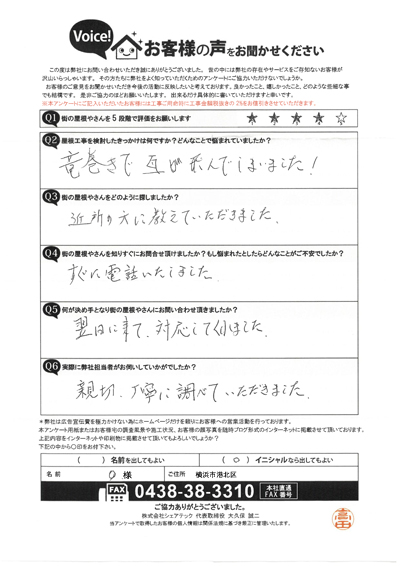 Voice!
お客様の声をお聞かせください
この度は弊社にお問い合わせいただき誠にありがとうございました。世の中には弊社の存在やサービスをご存知ないお客様が
沢山いらっしゃいます。その方たちに弊社をよく知っていただくためのアンケートにご協力いただけないでしょうか。
お客様のご意見をお聞かせいただき今後の活動に反映したいと考えております。良かったこと、嬉しかったこと、どのような些細な事
でも結構です。是非ご協力のほどお願いいたします。出来るだけ具体的に書いていただけますと幸いです。
※本アンケートにご記入いただいたお客様には工事ご用命時に工事金額総計の2%をお値引きさせていただきます。
Q1 街の屋根やさんを5段階で評価をお願いします ★ ★ ★ ★ ☆
Q2 屋根工事を検討したきっかけは何ですか?どんなことで悩まれていましたか?
竜巻きで瓦が飛んでしまいました!
Q3 街の屋根やさんをどのように探しましたか?
近所の方に教えていただきました。
Q4 街の屋根やさんを知りすぐにお問合せ頂けましたか?もし悩まれたとしたらどんなことがご不安でしたか?
すぐに電話いたしました。
Q5 何が決め手となり街の屋根やさんにお問い合わせ頂けましたか?
翌日に来て、対応して頂けました。
Q6 実際に弊社担当者がお伺いしていかがでしたか?
親切、丁寧に調べていただきました。
*弊社は広告宣伝費を極力かけない為にホームページだけを頼りにお客様への営業活動を行っております。
本アンケート用紙またはお客様宅の調査風景や施工状況、お客様の顔写真を随時ブログ形式のインターネットに掲載させて頂いております。
上記内容をインターネットや印刷物に掲載させて頂いてもよろしいでしょうか?
下記の中から〇印をお付下さい。
( ) 名前を出してもよい ( 〇 ) イニシャルなら出してもよい
名前 O 様 ご住所 横浜市港北区
FAX 0438-38-3310 本社直通 FAX番号
ご協力ありがとうございました。
株式会社シェアテック 代表取締役 大久保 誠二
当アンケートで取得したお客様の個人情報は関係法規に基づき厳正に管理いたします。
高田